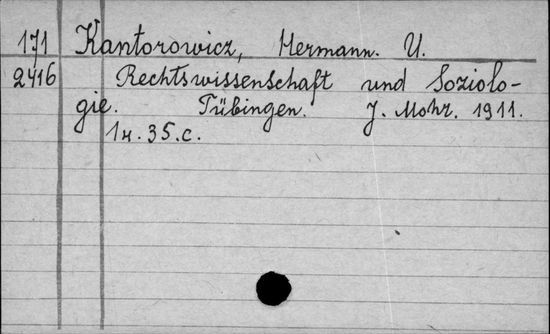 171 Kantorowicz, Hermann. U.
2416 Rechtswissenschaft und Soziolo-
gie. Tübingen. J. Mohr. 1911.
1н. 35.c.